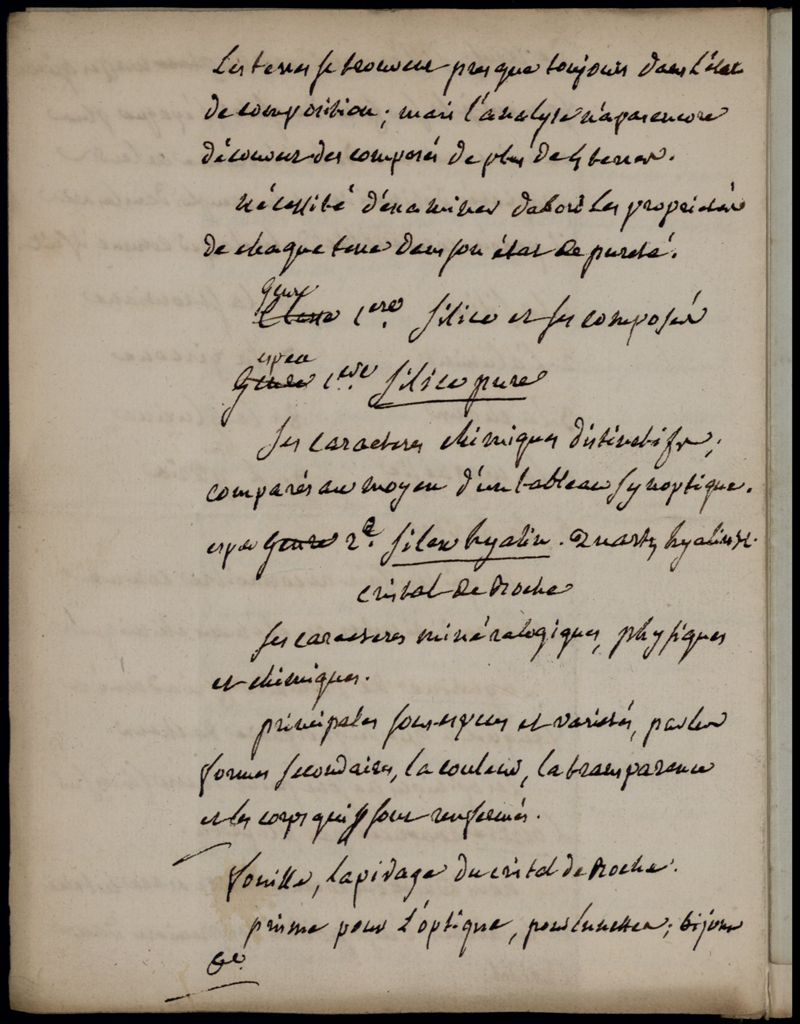 Les terres se trouvent presque toujours dans l'état
de composition ; mais l'analyse n'a pas encore
découvert des composés de plus de 4 terres.
nécessité d'examiner d'abord les propriétés
de chaque terre dans son état de pureté.
genre
Classe 1ere. Silice et ses composés
espece
Genre 1ere. Silice pure
ses caracteres chimiques distinctifs ;
comparés au moyen d'un tableau synoptique.
espece Genre 2e. silex hyalin. Quartz hyalin &c.
cristal de Roche
ses caracteres minéralogiques, physiques
et chimiques.
principales sous-especes et variétés, par les
formes secondaires, la couleur, la transparence
et les corps qui y sont renfermés.
fouille, lapidage du cristal de Roche.
prisme pour l'optique, pour lunettes ; bijoux
&c.